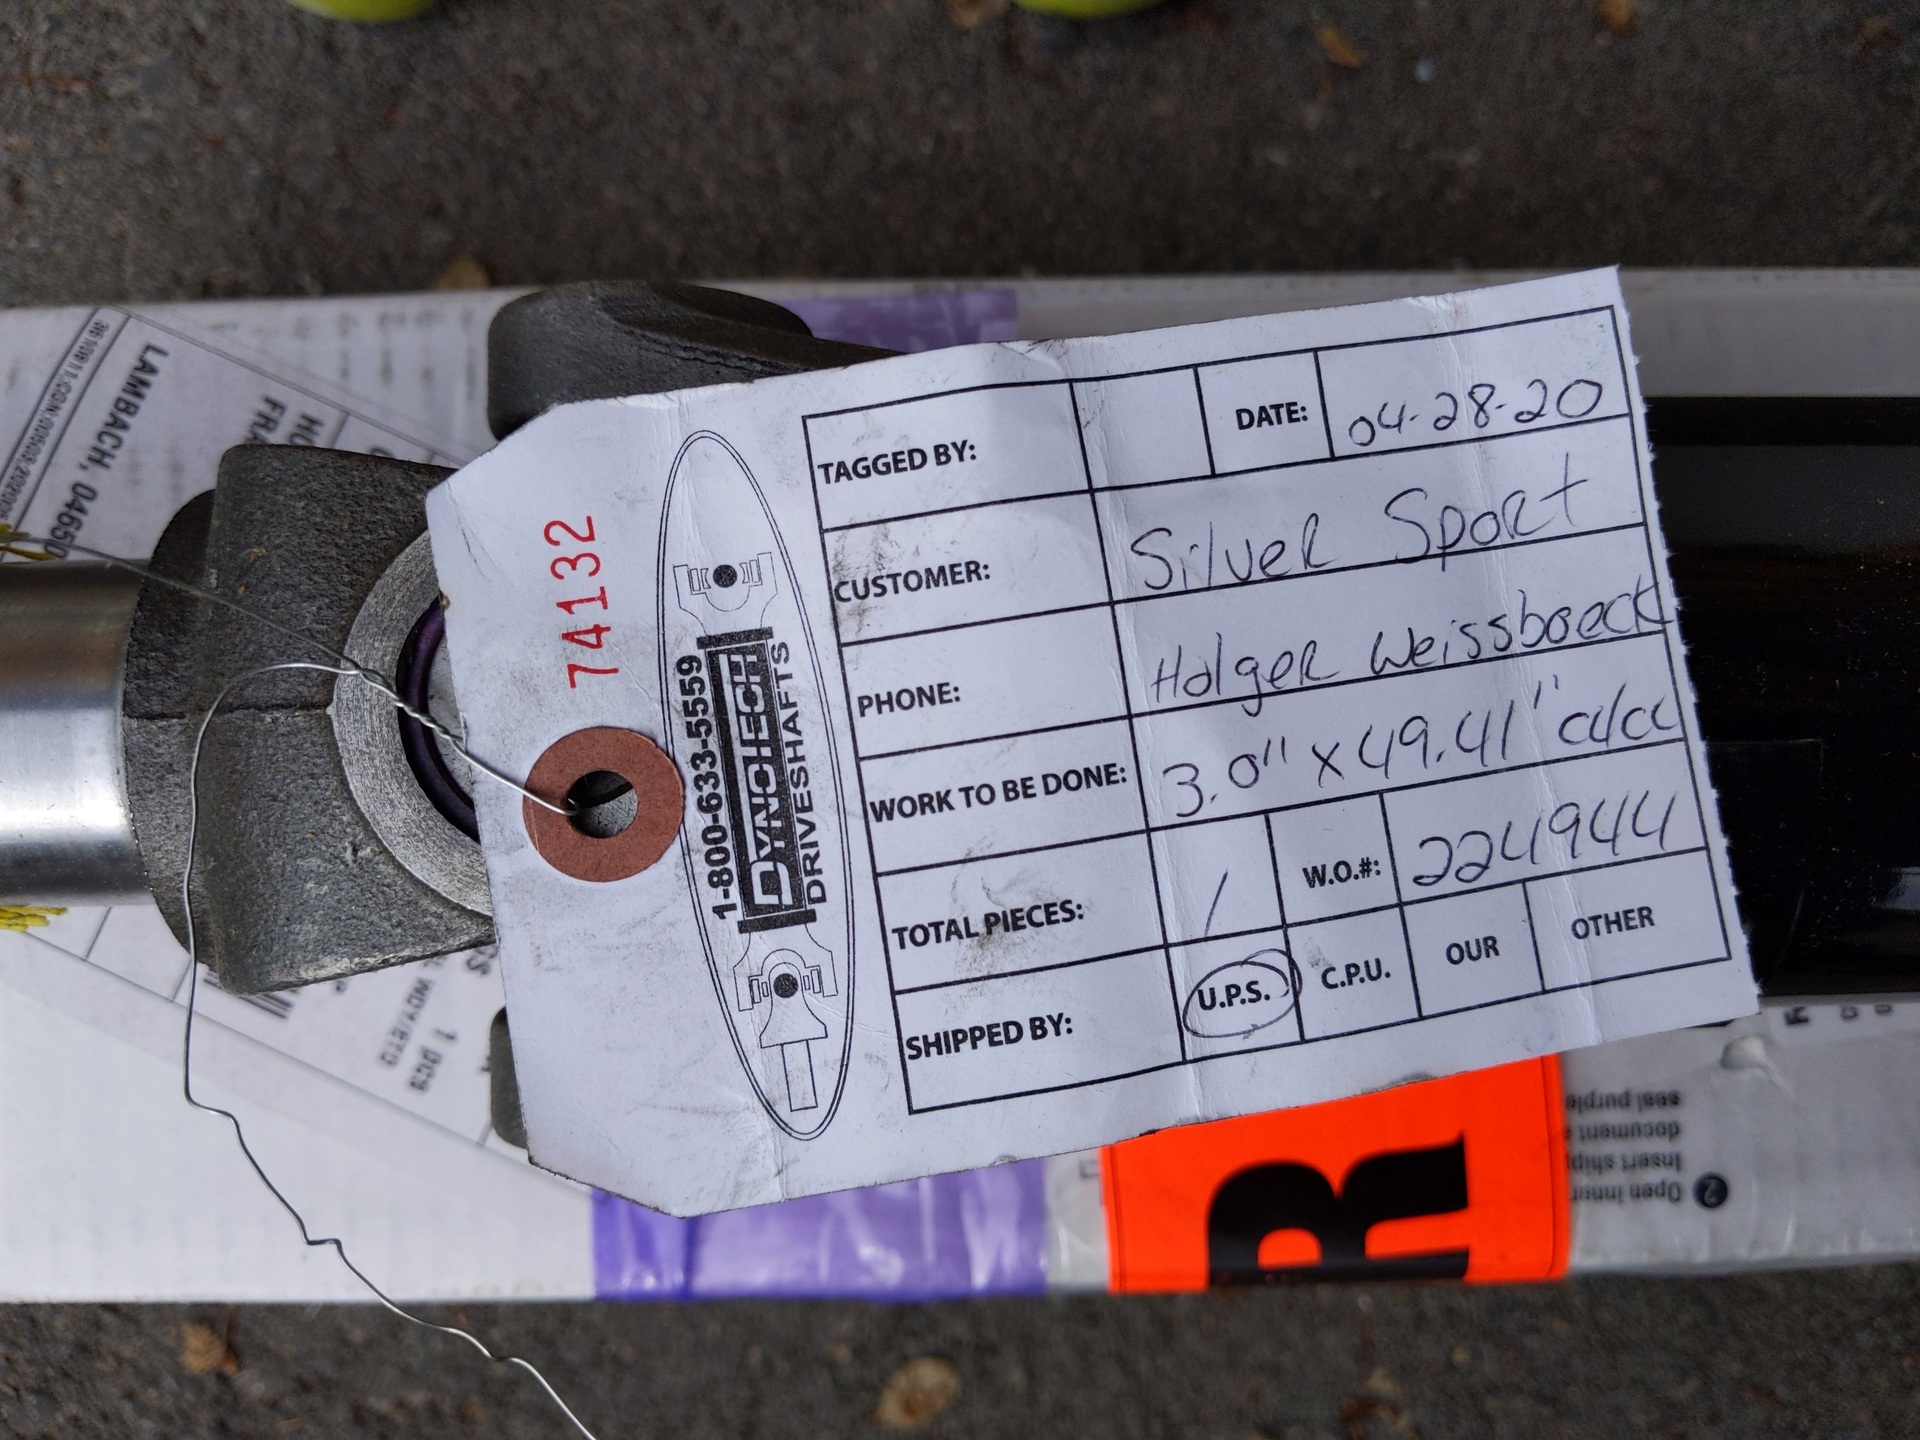 74132
1-800-633-5559
DYNOTECH
DRIVESHAFTS
TAGGED BY:
DATE: 04-28-20
CUSTOMER: Silver Sport
PHONE: Holger Weissboeck
WORK TO BE DONE: 3.0" x 49.41" cl/cl
TOTAL PIECES: 1 W.O.#: 224944
SHIPPED BY: U.P.S. C.P.U. OUR OTHER
LAMBACH, 04650
1 pcs
R
2 Open inner
Insert ship
document
seal purple